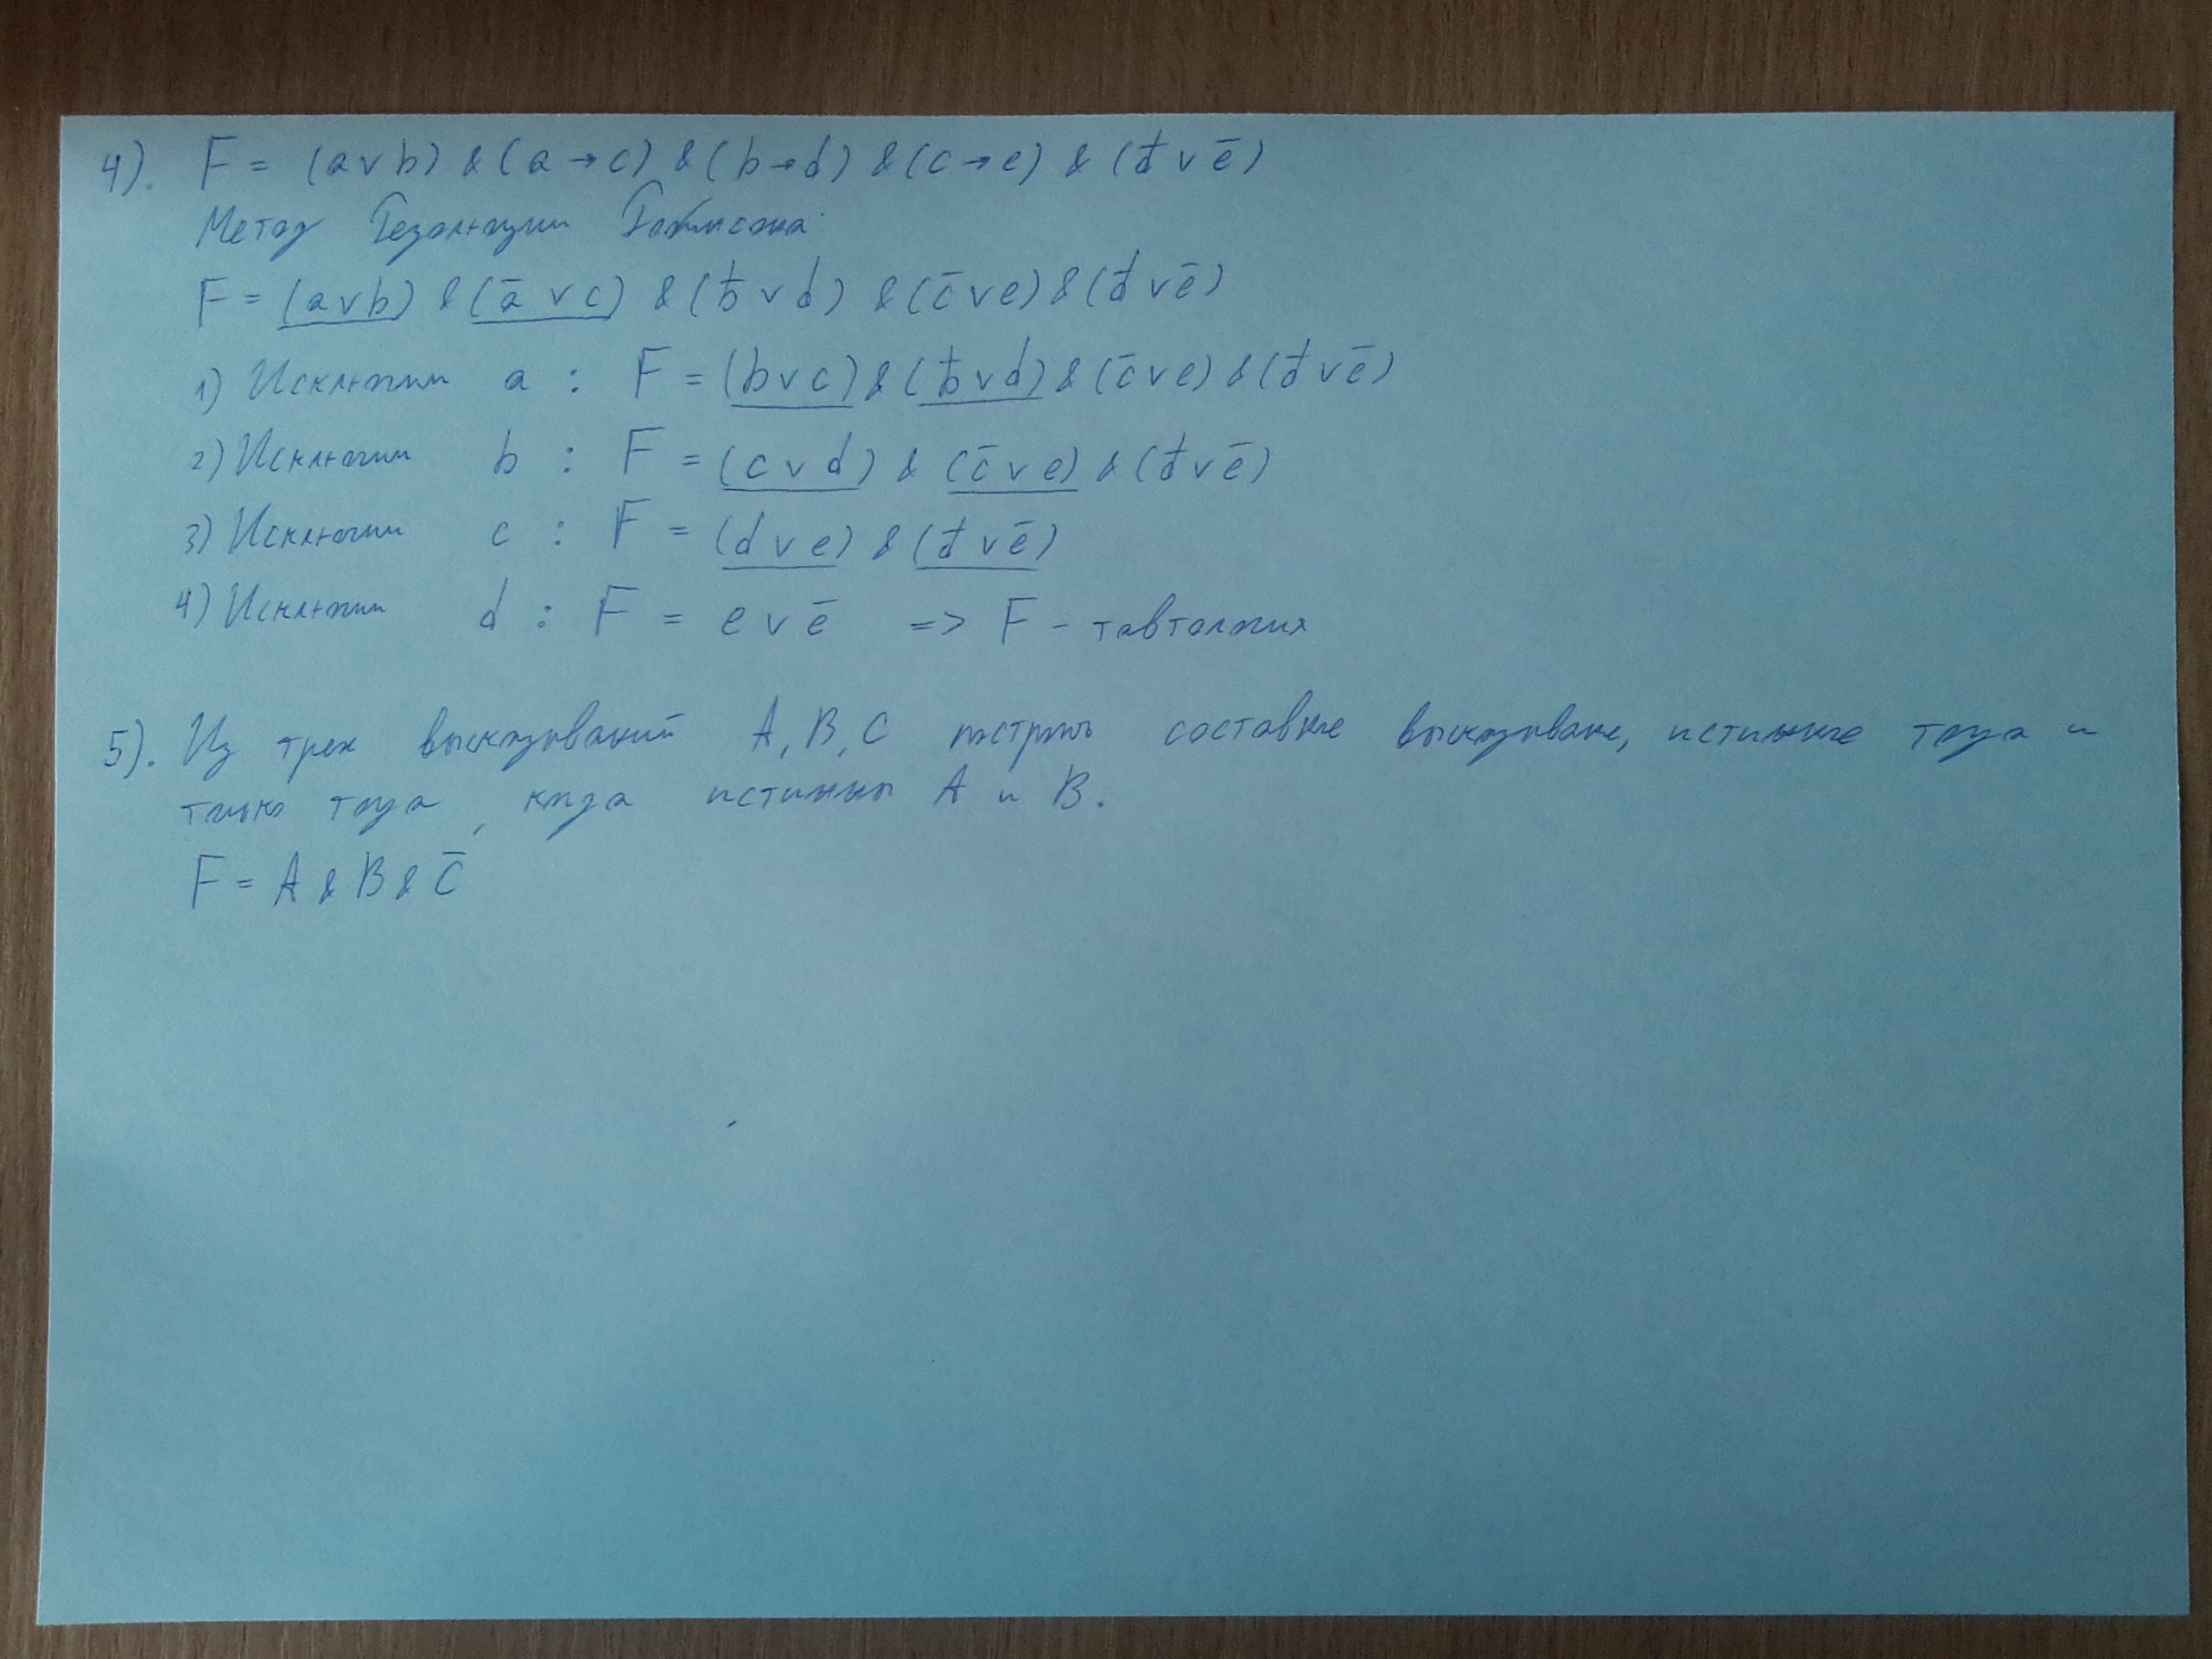 4). F = (a v b) & (a → c) & (b → d) & (c → e) & (d̄ v ē)
Метод Резолюции Робинсона:
F = (a v b) & (ā v c) & (b̄ v d) & (c̄ v e) & (d̄ v ē)
1) Исключим a : F = (b v c) & (b̄ v d) & (c̄ v e) & (d̄ v ē)
2) Исключим b : F = (c v d) & (c̄ v e) & (d̄ v ē)
3) Исключим c : F = (d v e) & (d̄ v ē)
4) Исключим d : F = e v ē => F - тавтология
5). Из трех высказываний A, B, C построить составное высказывание, истинное тогда и
только тогда, когда истинны A и B.
F = A & B & C̄